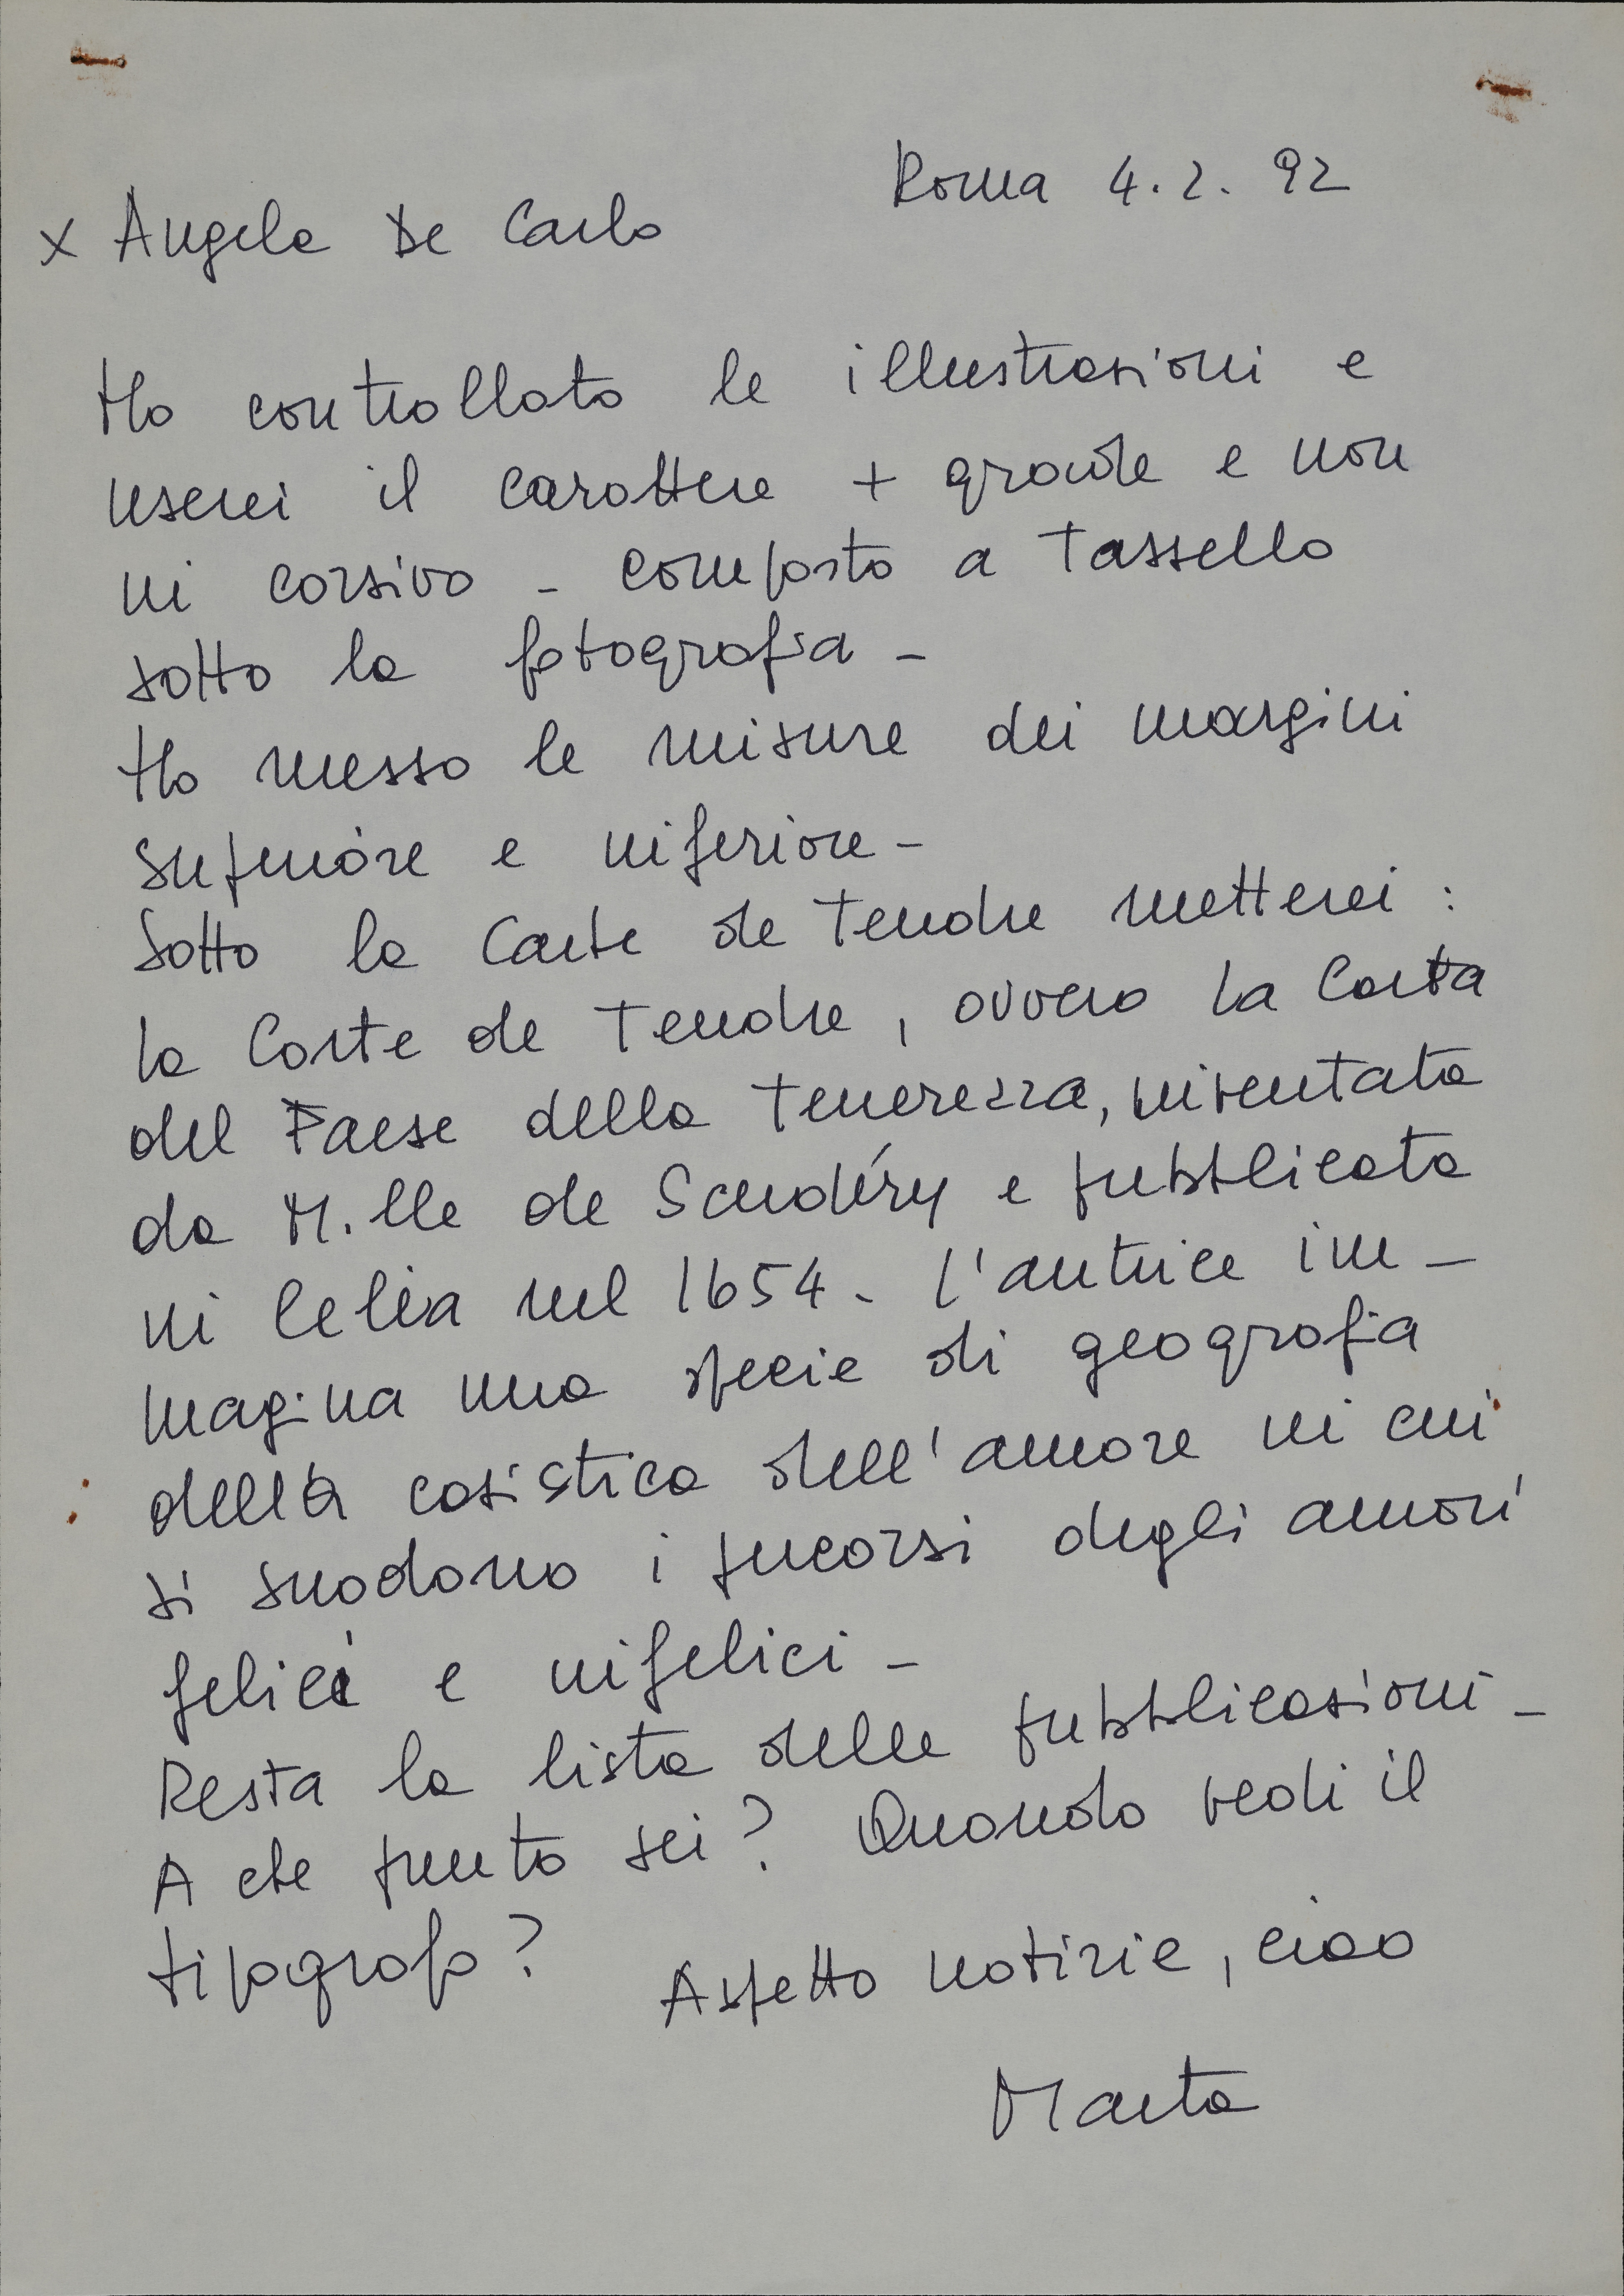 Roma 4.2.92
x Angela De Carlo
Ho controllato le illustrazioni e
userei il carattere + grande e non
in corsivo - composto a Tassello
sotto la fotografia -
Ho messo le misure dei margini
superiore e inferiore -
Sotto la Carte de Tendre metterei :
la Carte de Tendre, ovvero la Carta
del Paese della Tenerezza, inventata
da M.lle de Scudéry e pubblicata
in Celia nel 1654. L'autrice im-
magina una specie di geografia
della casistica dell'amore in cui
si snodano i percorsi degli amori
felici e infelici -
Resta la lista delle pubblicazioni -
A che punto sei? Quando vedi il
tipografo?
Aspetto notizie, ciao
Marta